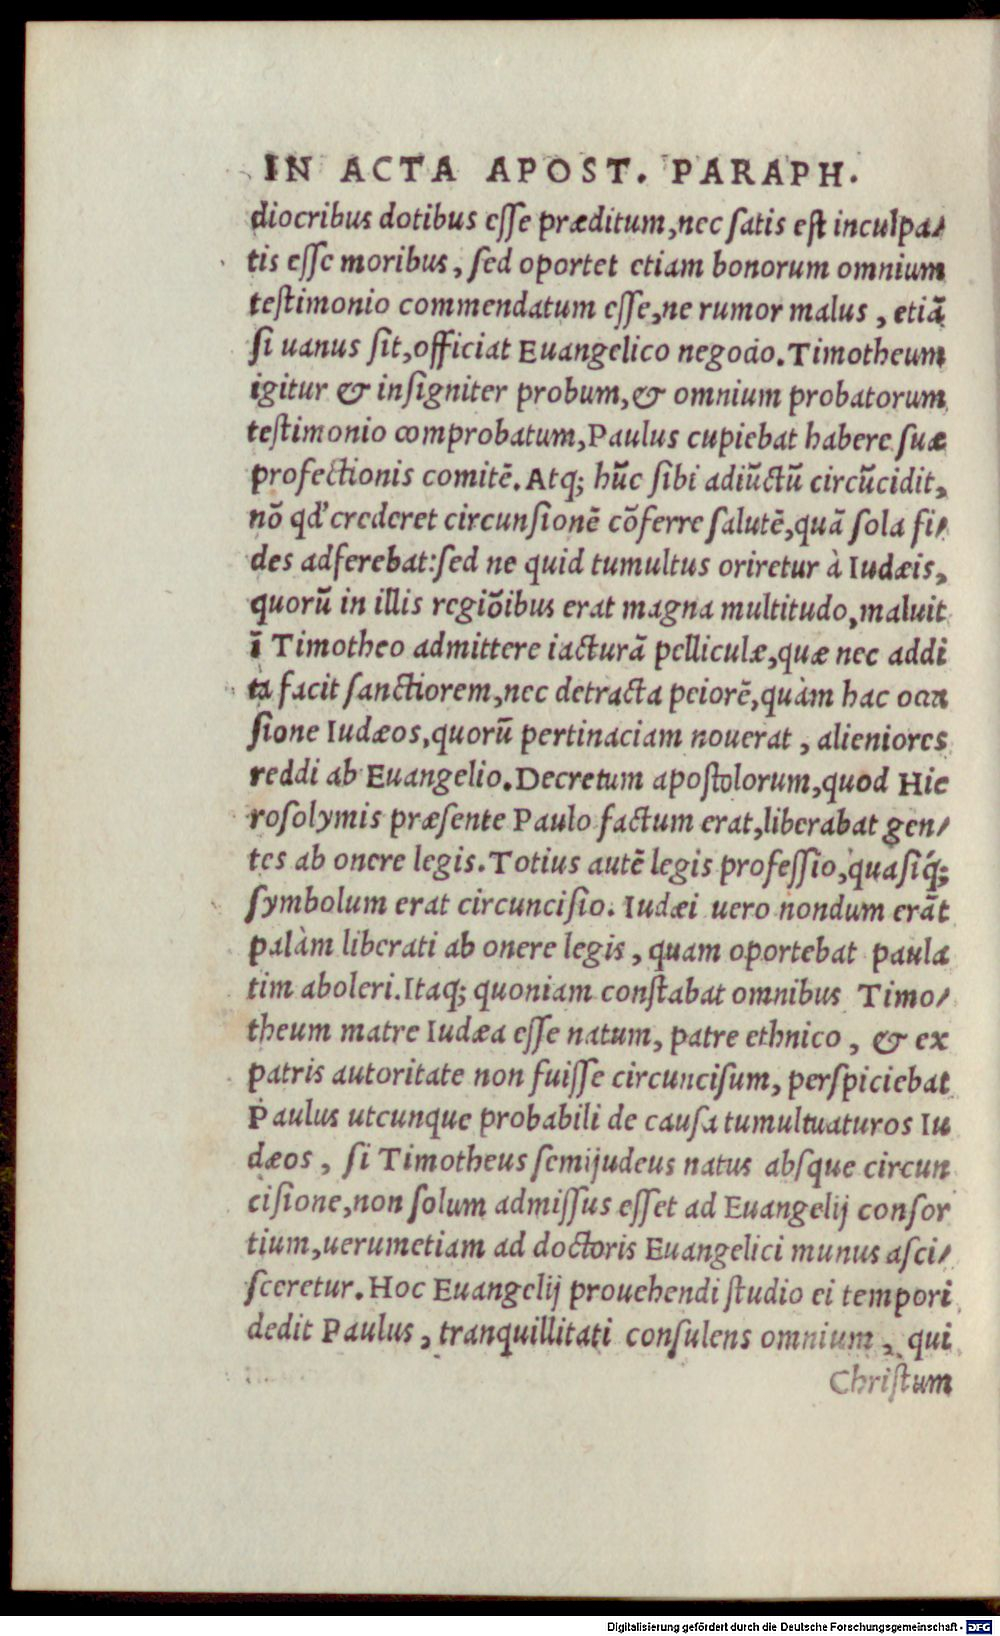 IN ACTA APOST. PARAPH.
diocribus dotibus esse præditum, nec satis est inculpa/
tis esse moribus, sed oportet etiam bonorum omnium
testimonio commendatum esse, ne rumor malus, etiã
si uanus sit, officiat Euangelico negocio. Timotheum
igitur & insigniter probum, & omnium probatorum
testimonio comprobatum, Paulus cupiebat habere suæ
profectionis comitẽ. Atq; hũc sibi adiũctũ circũcidit,
nõ qď crederet circunsionẽ cõferre salutẽ, quã sola fi/
des adferebat: sed ne quid tumultus oriretur à Iudæis,
quorũ in illis regiõibus erat magna multitudo, maluit
ĩ Timotheo admittere iacturã pelliculæ, quæ nec addi
ta facit sanctiorem, nec detracta peiorẽ, quàm hac occa
sione Iudæos, quorũ pertinaciam nouerat, alieniores
reddi ab Euangelio. Decretum apostolorum, quod Hie
rosolymis præsente Paulo factum erat, liberabat gen/
tes ab onere legis. Totius autẽ legis professio, quasiq́;
symbolum erat circuncisio. Iudæi uero nondum erãt
palàm liberati ab onere legis, quam oportebat paula
tim aboleri. Itaq; quoniam constabat omnibus Timo/
theum matre Iudæa esse natum, patre ethnico, & ex
patris autoritate non fuisse circuncisum, perspiciebat
Paulus utcunque probabili de causa tumultuaturos Iu
dæos, si Timotheus semijudeus natus absque circun
cisione, non solum admissus esset ad Euangelij consor
tium, uerumetiam ad doctoris Euangelici munus asci/
sceretur. Hoc Euangelij prouehendi studio ei tempori
dedit Paulus, tranquillitati consulens omnium, qui
Christum
Digitalisierung gefördert durch die Deutsche Forschungsgemeinschaft - DFG